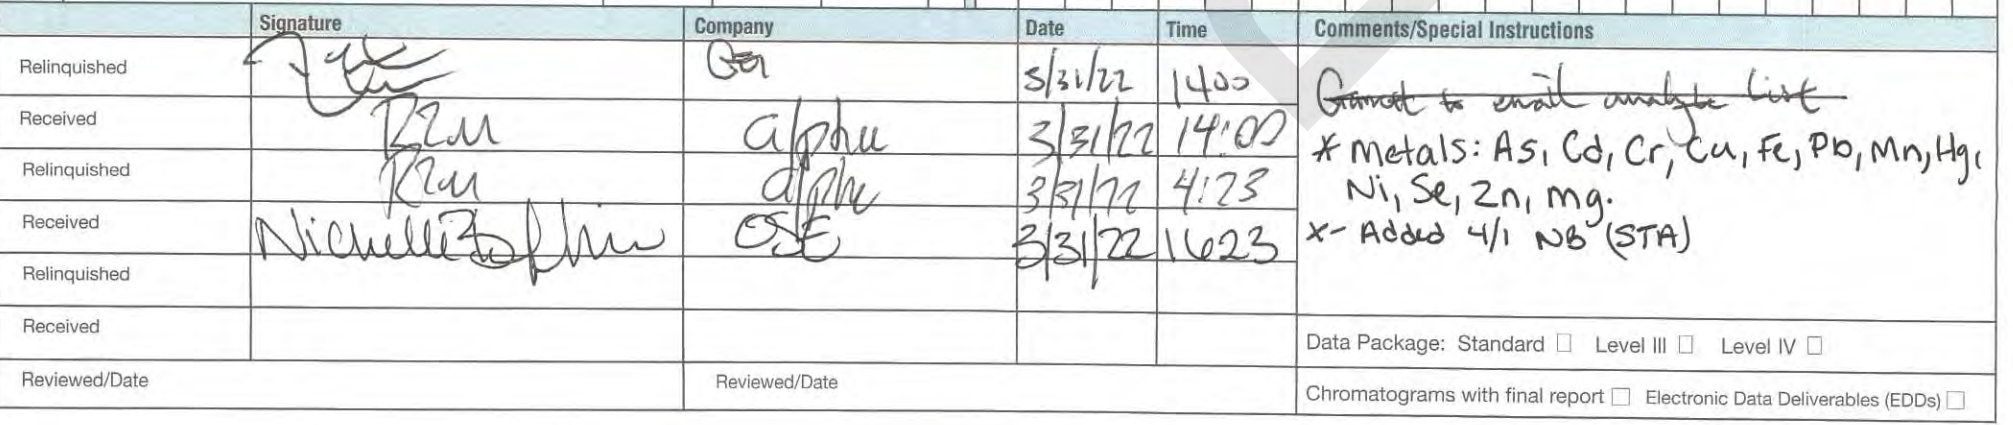 Signature Company Date Time Comments/Special Instructions
Relinquished 3/31/22 1400 Garrett to email analyte list
Received alpha 3/31/22 14:00 * Metals: As, Cd, Cr, Cu, Fe, Pb, Mn, Hg,
Relinquished alpha 3/31/22 4:23 Ni, Se, Zn, Mg.
Received OSE 3/31/22 1623 X- Added 4/1 NB (STA)
Relinquished
Received Data Package: Standard □ Level III □ Level IV □
Reviewed/Date Reviewed/Date Chromatograms with final report □ Electronic Data Deliverables (EDDs) □